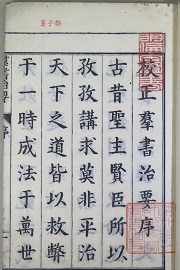 校正羣書治要序
古昔聖主賢臣所以
孜孜講求莫非平治
天下之道皆以救弊
于一時成法于萬世
序